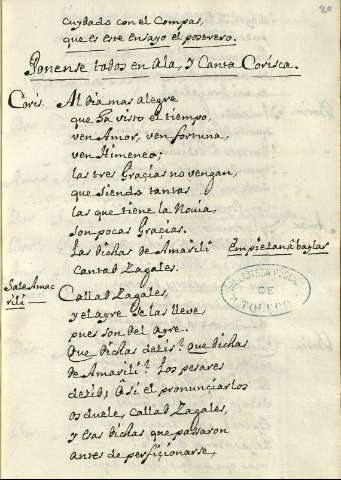 20
cuydado con el Compas,
que es este ensayo el postrero.
Ponense todos en Ala, y Canta Corisca.
Coris. Al dia mas alegre
que ha visto el tiempo,
ven Amor, ven fortuna,
ven Himeneo;
las tres Gracias no vengan,
que siendo tantas
las que tiene la Novia,
son pocas Gracias.
Las dichas de Amarili Empiezan à baylar
Cantad Zagales.
Sale Ama-
rili Callad Zagales,
y el agre se las lleve
pues son del agre.
Que dichas dezis? que dichas
de Amarili? Los pesares
dezid; Assi el pronunciarlos
os duele, callad Zagales,
y esas dichas que passaron
antes de perficionarse,
BIBLIOTECA
DE
TOLEDO